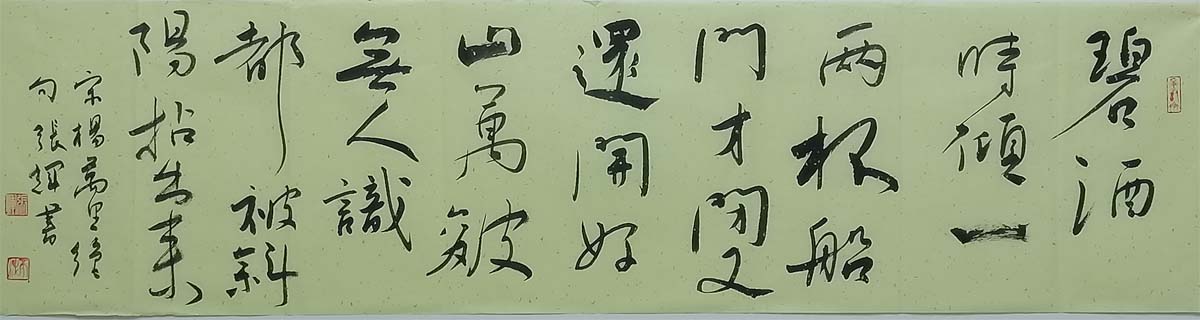 碧酒
時傾一
兩杯船
門才閉又
還開好
山萬皴
無人識
都被斜
陽拈出來
宋楊萬里絕
句張輝書